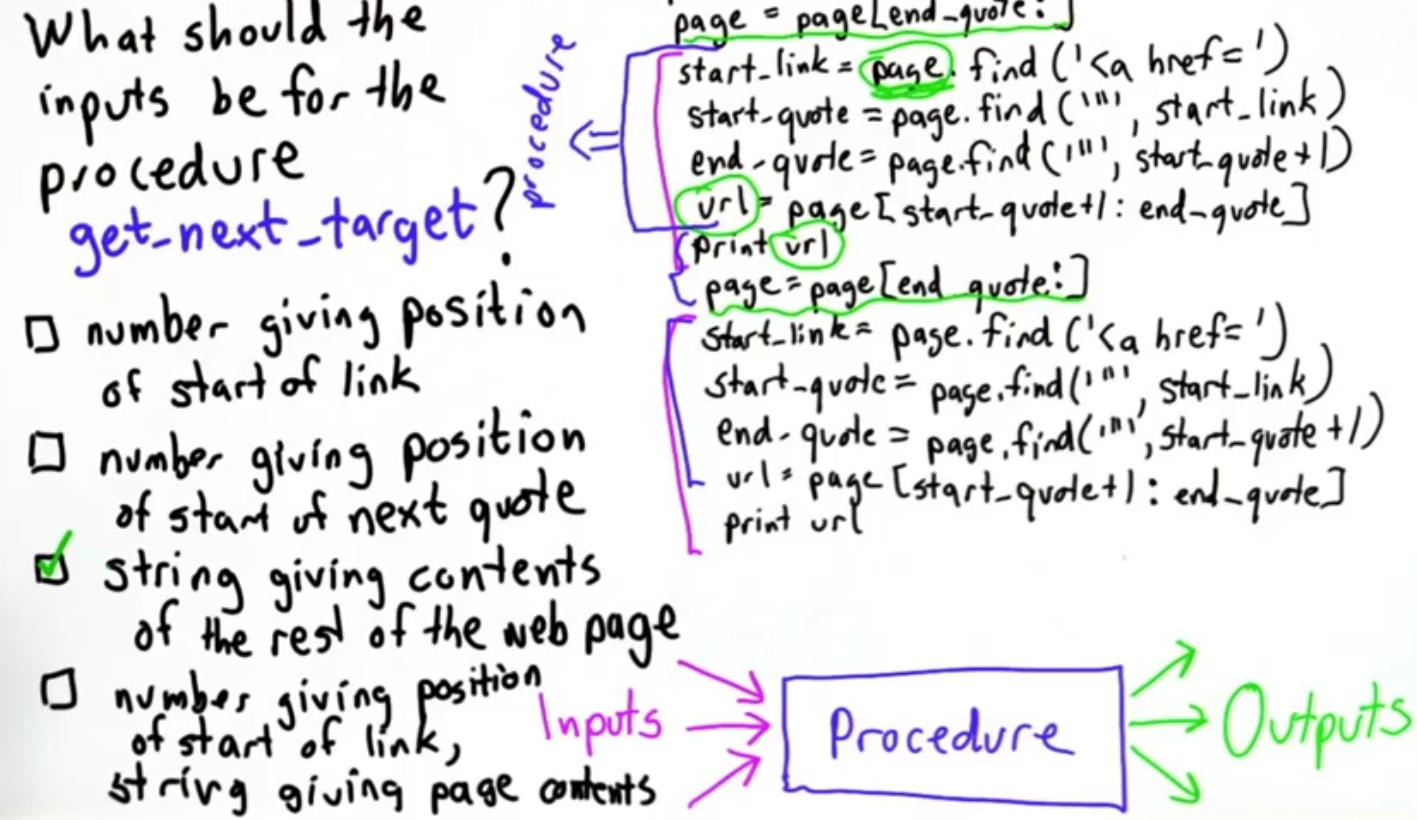 What should the
inputs be for the
procedure
get_next_target?
□ number giving position
of start of link
□ number giving position
of start of next quote
☑ string giving contents
of the rest of the web page
□ number giving position
of start of link,
string giving page contents
procedure
page = page[end_quote:]
start_link = page.find('<a href=')
start_quote = page.find('"', start_link)
end_quote = page.find('"', start_quote+1)
url = page[start_quote+1:end_quote]
print url
page = page[end_quote:]
start_link = page.find('<a href=')
start_quote = page.find('"', start_link)
end_quote = page.find('"', start_quote+1)
url = page[start_quote+1:end_quote]
print url
Inputs
Procedure
Outputs